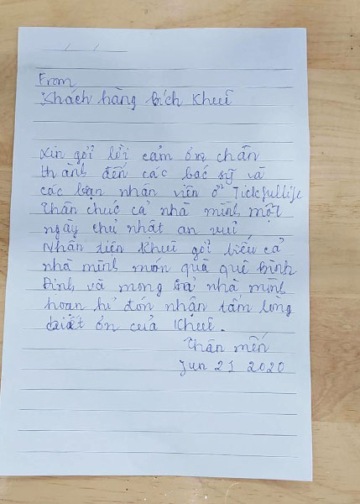 From
Khách hàng Bích Khuê
Xin gởi lời cảm ơn chân
thành đến các bác sỹ và
các bạn nhân viên ở
Thân chúc cả nhà mình một
ngày chủ nhật an vui
Nhân tiện Khuê gởi biếu cả
nhà mình món quà quê Bình
Định và mong cả nhà mình
hoan hỉ đón nhận tấm lòng
biết ơn của Khuê.
Thân mến
Jun 21 2020